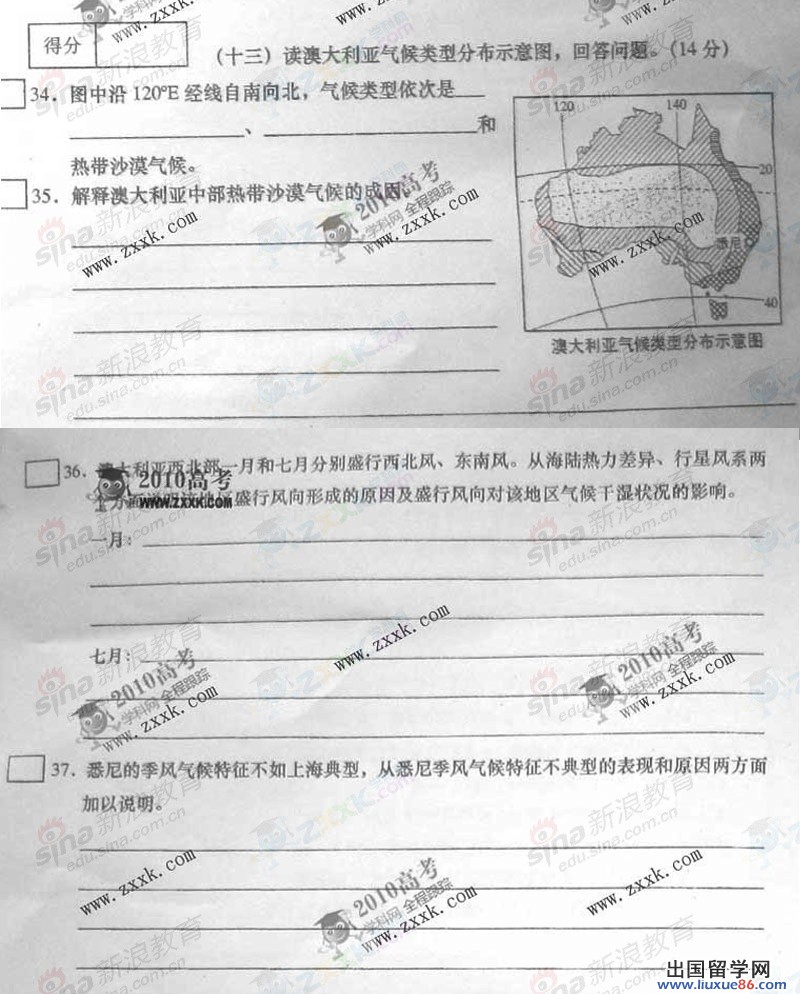 得分
（十三）读澳大利亚气候类型分布示意图，回答问题。（14 分）
34．图中沿 120°E 经线自南向北，气候类型依次是
、 和
热带沙漠气候。
35．解释澳大利亚中部热带沙漠气候的成因。
120 140
20
悉尼
40
澳大利亚气候类型分布示意图
36． 大利亚西北部一月和七月分别盛行西北风、东南风。从海陆热力差异、行星风系两
方面说明该地区盛行风向形成的原因及盛行风向对该地区气候干湿状况的影响。
一月：
七月：
37．悉尼的季风气候特征不如上海典型，从悉尼季风气候特征不典型的表现和原因两方面
加以说明。
2010高考
www.zxxk.com
学科网 全程跟踪
sina新浪教育
edu.sina.com.cn
出国留学网
www.liuxue86.com